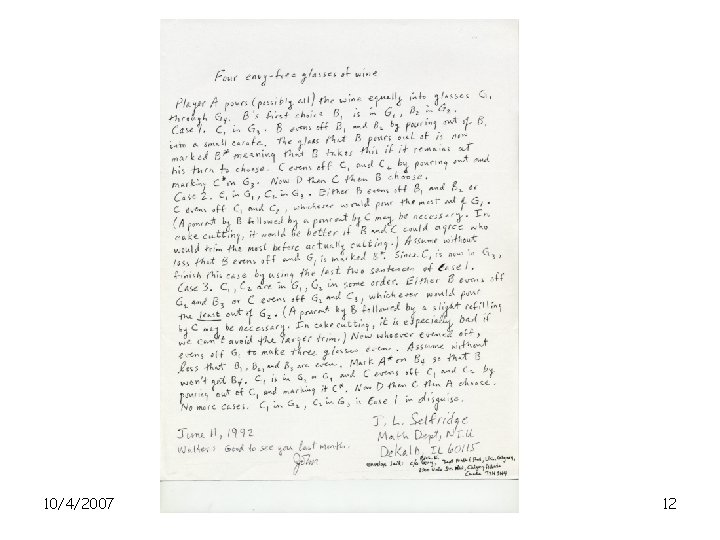 Four envy-free glasses of wine
Player A pours (possibly all) the wine equally into glasses G₁
through G₄. B's first choice B₁ is in G₁, B₂ in G₂.
Case 1. C₁ in G₃. B evens off B₁ and B₂ by pouring out of B₁
into a small carafe. The glass that B pours out of is now
marked B* meaning that B takes this if it remains at
his turn to choose. C evens off C₁ and C₂ by pouring out and
marking C* on G₃. Now D then C then B choose.
Case 2. C₁ in G₁, C₂ in G₃. Either B evens off B₁ and B₂ or
C evens off C₁ and C₂, whichever would pour the most out of G₁.
(A pourout by B followed by a pourout by C may be necessary. In
cake cutting, it would be better if B and C could agree who
would trim the most before actually cutting.) Assume without
loss that B evens off and G₁ is marked B*. Since C₁ is now in G₃,
finish this case by using the last two sentences of Case 1.
Case 3. C₁, C₂ are in G₁, G₂ in some order. Either B evens off
G₂ and B₃ or C evens off G₂ and C₃, whichever would pour
the least out of G₂. (A pourout by B followed by a slight refilling
by C may be necessary. In cake cutting, it is especially bad if
we can't avoid the larger trim.) Now whoever evened off,
evens off G₁ to make three glasses even. Assume without
loss that B₁, B₂, and B₃ are even. Mark A* on B₄ so that B
won't get B₄. C₁ is in G₁ or G₂ and C evens off C₁ and C₂ by
pouring out of C₁ and marking it C*. Now D then C then A choose.
No more cases. C₁ in G₂, C₂ in G₃ is Case 1 in disguise.
June 11, 1992
Walter: Good to see you last month.
John
J. L. Selfridge
Math Dept, NIU
DeKalb, IL 60115
10/4/2007
12